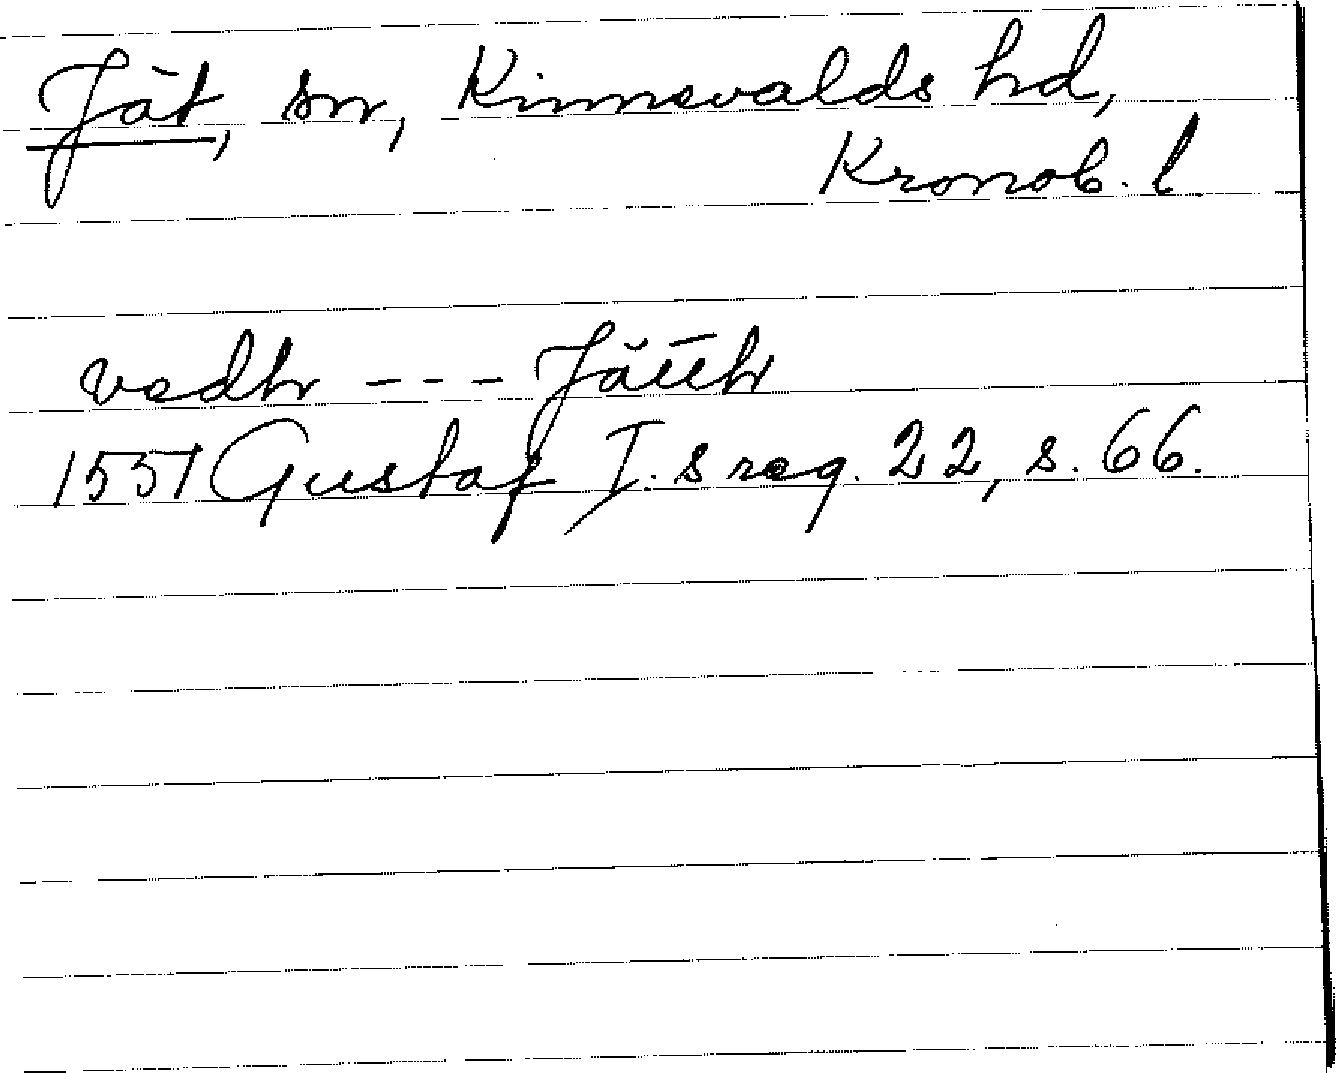 Jät, sn, Kinnevalds hd,
Kronob. l.
vedh --- Jätth
1551 Gustaf I:s reg. 22, s. 66.